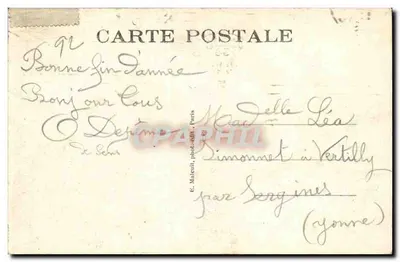 92
CARTE POSTALE
Bonne fin d'année
Bonjour tous
de Sens
E. Malcuit, phot.-édit., Paris
CPARHIL
Mademoiselle Léa
Simonnet à Vertilly
par Sergines
(Yonne)